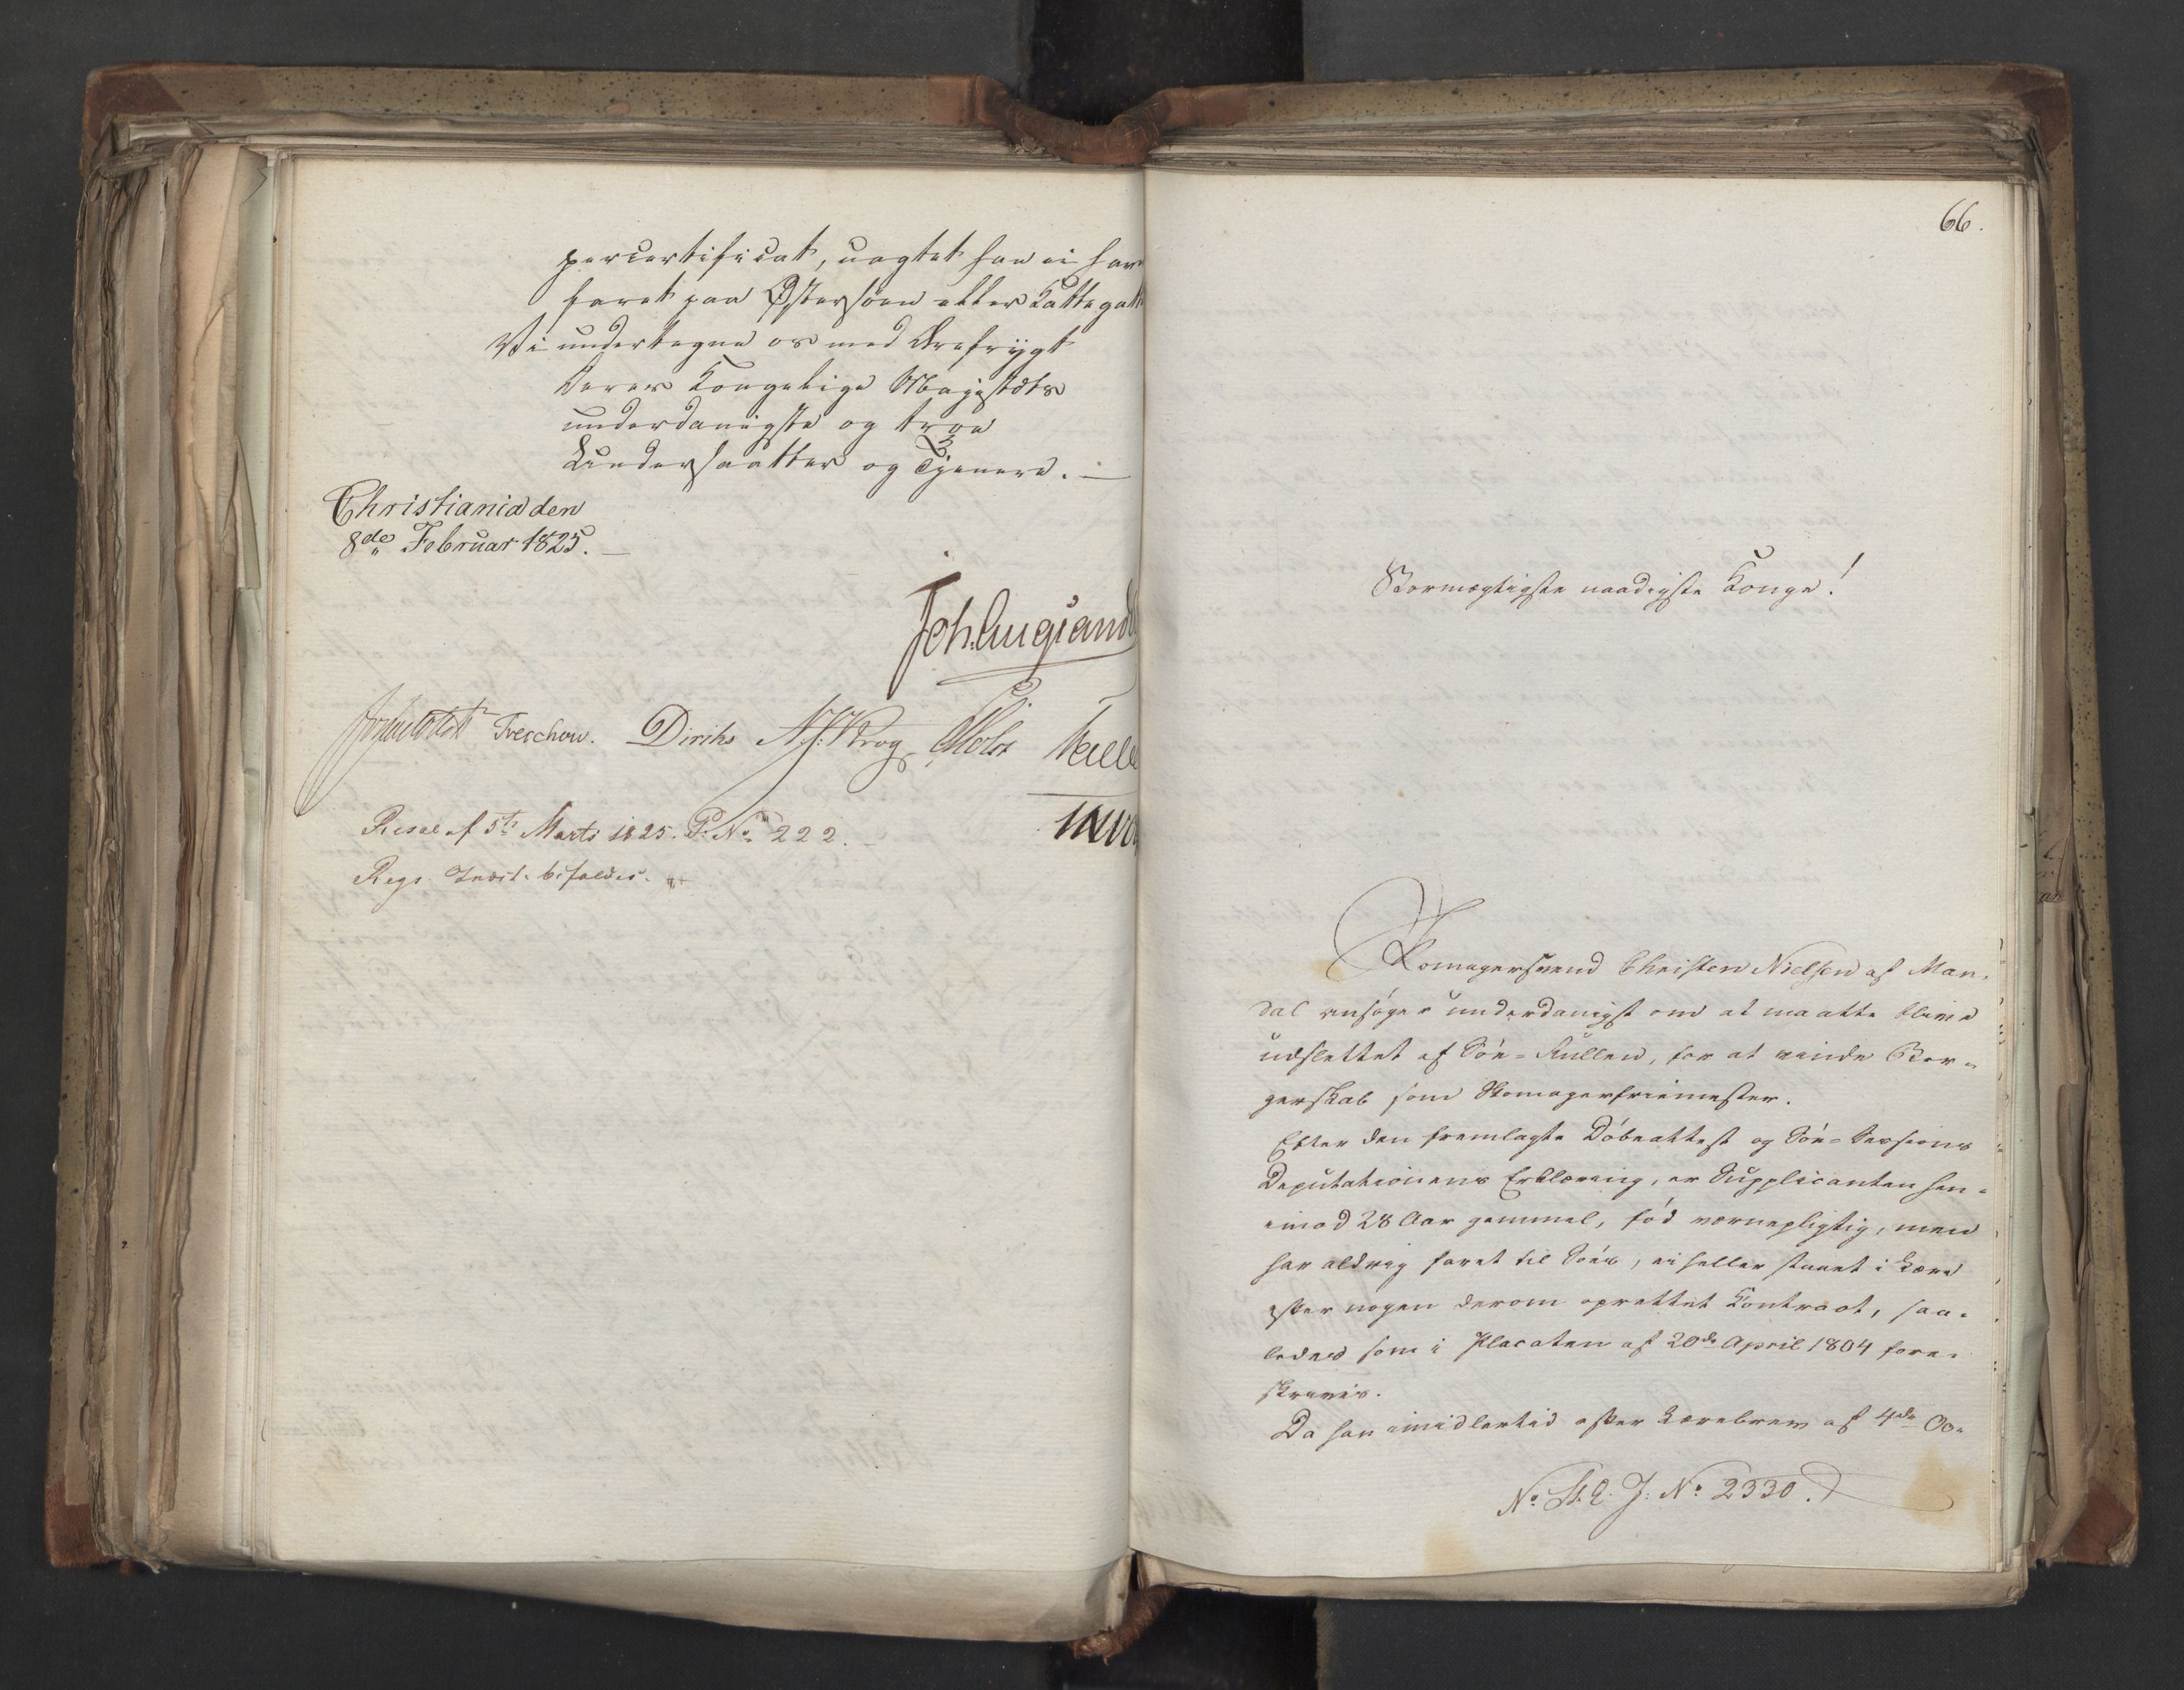 percertificat, uagtet han ei har
faret paa Østersöen eller Kattegatt
Vi undertegne os med Ærefrygt
Deres Kongelige Majestæts
underdanigste og troe
Undersaatter og Tjenere. —
Christiania den
8de Februar 1825. —
Joh. Aug: Sand
Treschow. Diriks Krog Motz
Resol af 5te Marts 1825. P: No 222. —
Regs Indst. bifaldes.
66.
Stormægtigste naadigste Konge!
Skomagersvend Christen Nielsen af Man-
dal ansøger underdanigst om at maatte blive
udslettet af Söe-Rullen, for at vinde Bor-
gerskab som Skomagerfriemester.
Efter den fremlagte Döbeattest og Söe-Sessions
Deputationens Erklæring, er Supplicanten hen-
imod 28 Aar gammel, födt værnepligtig, men
har aldrig faret til Söes, ei heller staaet i Lære
efter nogen derom oprettet Kontract, saa-
ledes som i Placaten af 20de April 1804 fore-
skrevis.
Da han imidlertid efter Lærebrev af 4de Oc-
No. St. E. J: No 2330.